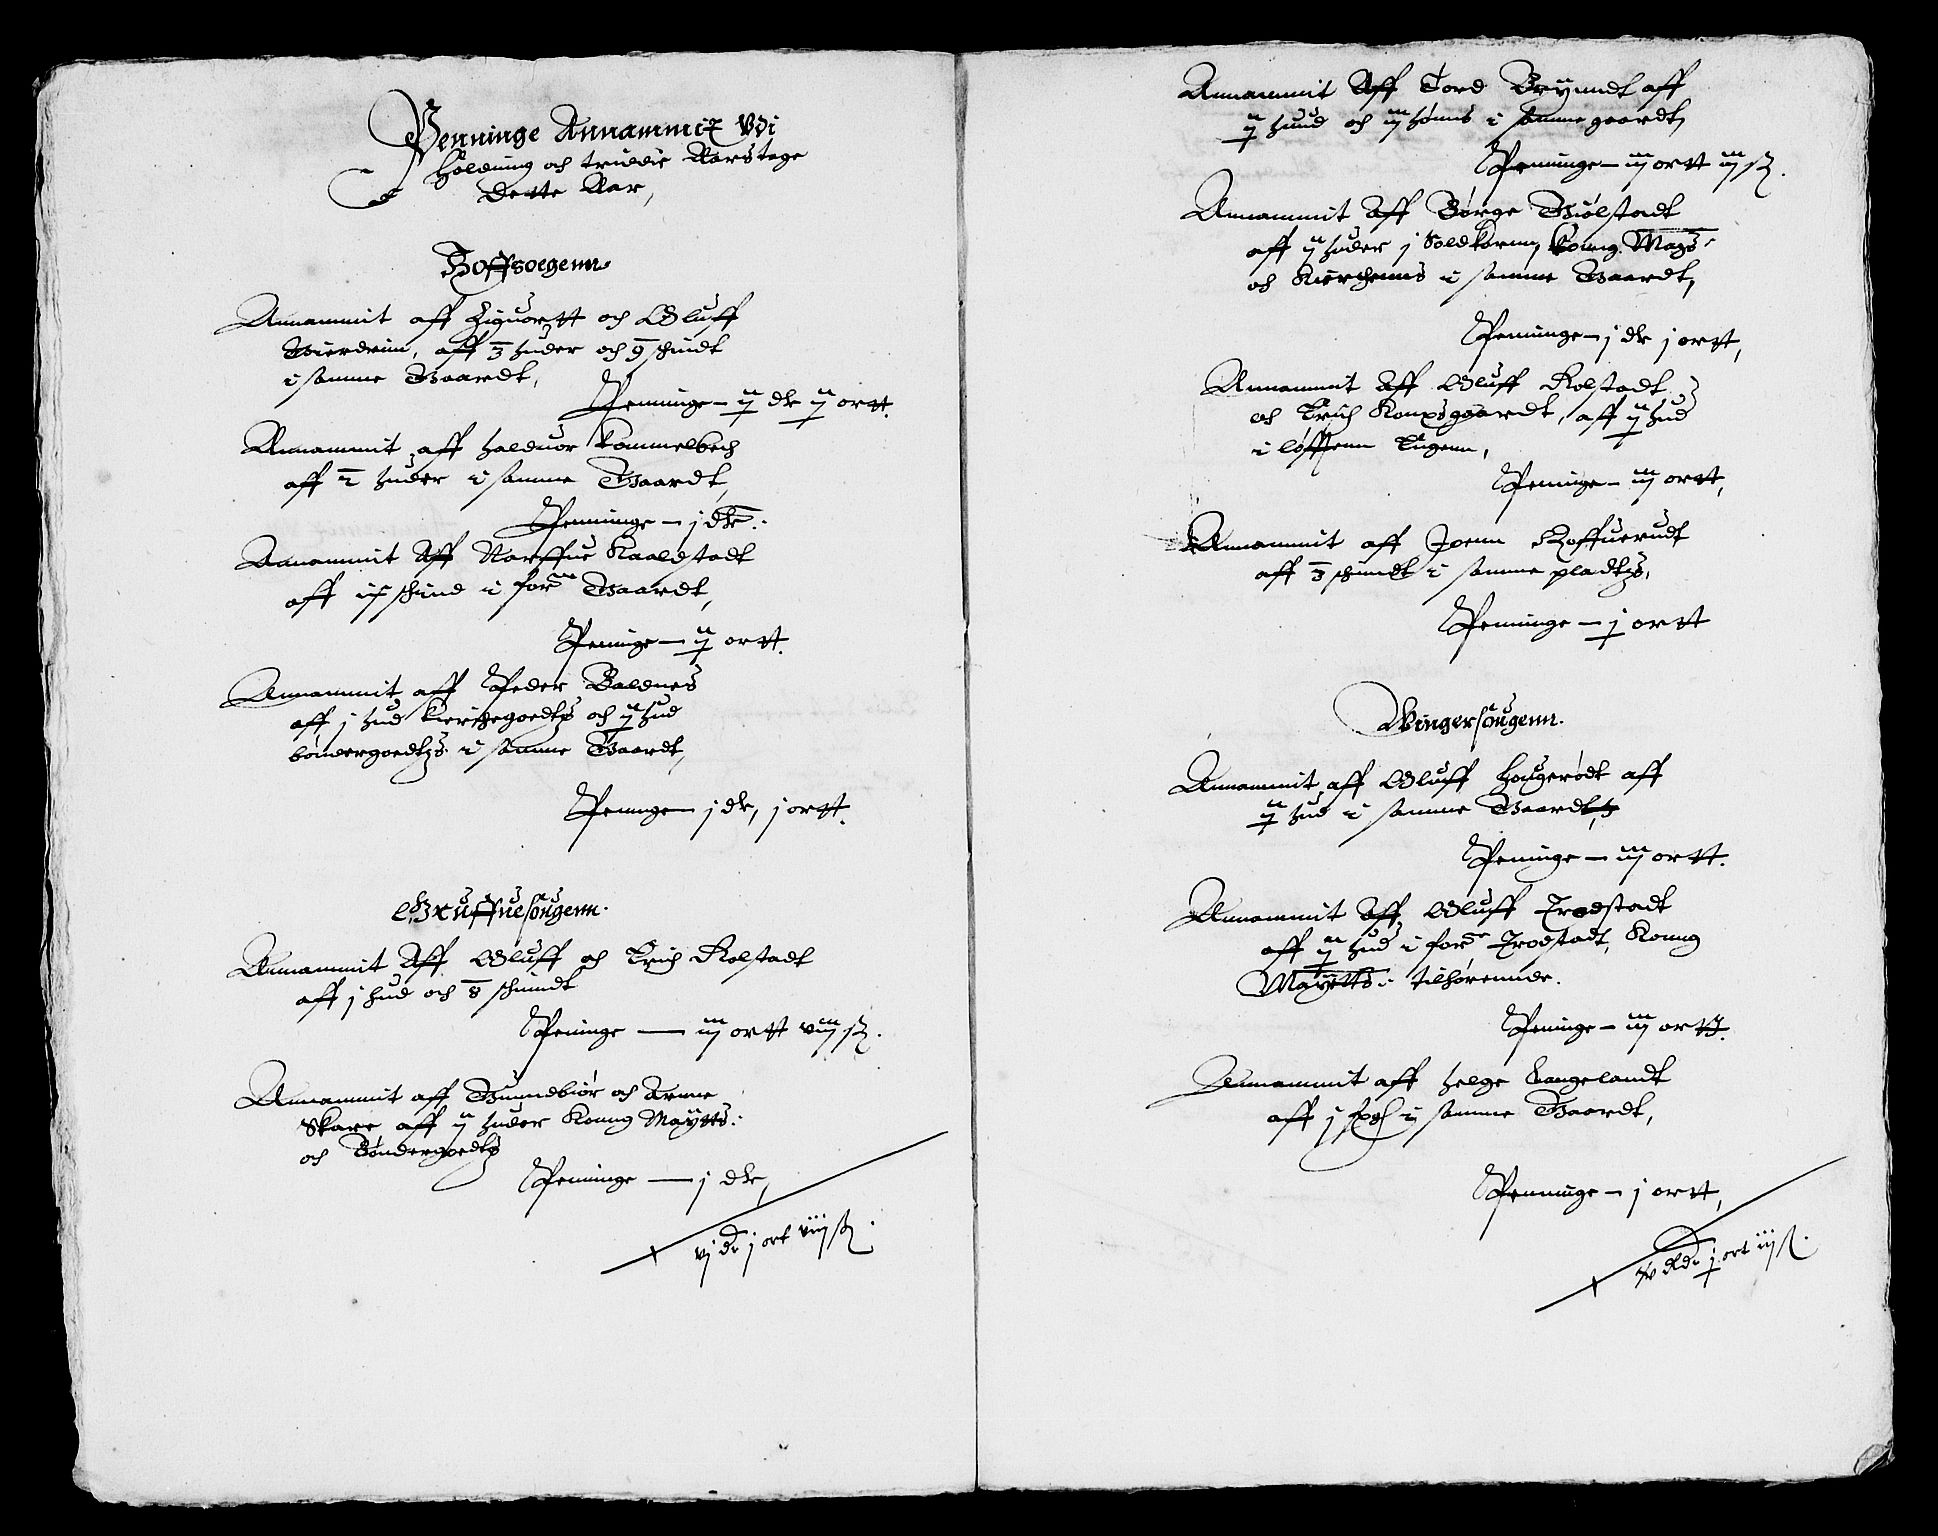 Penninge Annammit Vdi
Holdning och tridie Aars tage
Dette Aar,
Hoffsoegenn
Annammit aff Siguortt och Oluff
aff 3 huder och 9 schindt
i samme Gaardt,
Penninge – ij dlr ij ortt.
Annammit aff Halduor Kommelbech
aff 2 huder i samme Gaardt,
Penninge – j dlr.
Annammit Aff Narffue Kaalstadt
aff schind i for:ne Gaardt,
Peninge – ij ortt.
Annammit aff Peder Baldnes
aff j hud kierchegoedtz och ij hud
bøndergoedtz i samme Gaardt,
Peninge – j dlr, j ortt.
Gruffuesougenn.
Annammit Aff Oluff och Erich Rolstadt
aff j hud och 8 schindt
Peninge — iij ortt viij sz.
Annammit aff Gunnebiør och Arne
Skare aff ij huder Konng Maytts:
och Bøndergoedtz
Penninge — j dlr,
vj dr j ort viij sz.
Annammit Aff Tord Bryundt aff
ij hud och iij skinns i samme gaardt,
Penninge – iij ortt iij sz.
Annammit Aff Børge Giølstadt
aff ij huder j Soldkøring Konng. Mays:
och Kierchenns i samme Gaardt,
Penninge – j dlr j ortt,
Annammit Aff Oluff Rolstadt,
och Erich Kongsgaardt, aff ij hud
i løffsenn Eugenn,
Peninge – iij ortt,
Annammit aff Joenn Hoffuerudt
aff 3 schindt i samme pladtz,
Penninge – j ortt
Wingersougenn.
Annammit aff Oluff Hougerødt aff
ij hud i samme Gaardt,
Peninge – iij ortt.
Annammit Aff Oluff Trodstadt
aff ij hud i for:ne Trodstadt, Konng
Maÿetts: tilhørennde.
Peninge – iij ortt.
Annammit aff Helge Langelandt
aff j i samme Gaardt,
Penninge – j ortt,
dlr j ort iij sz.